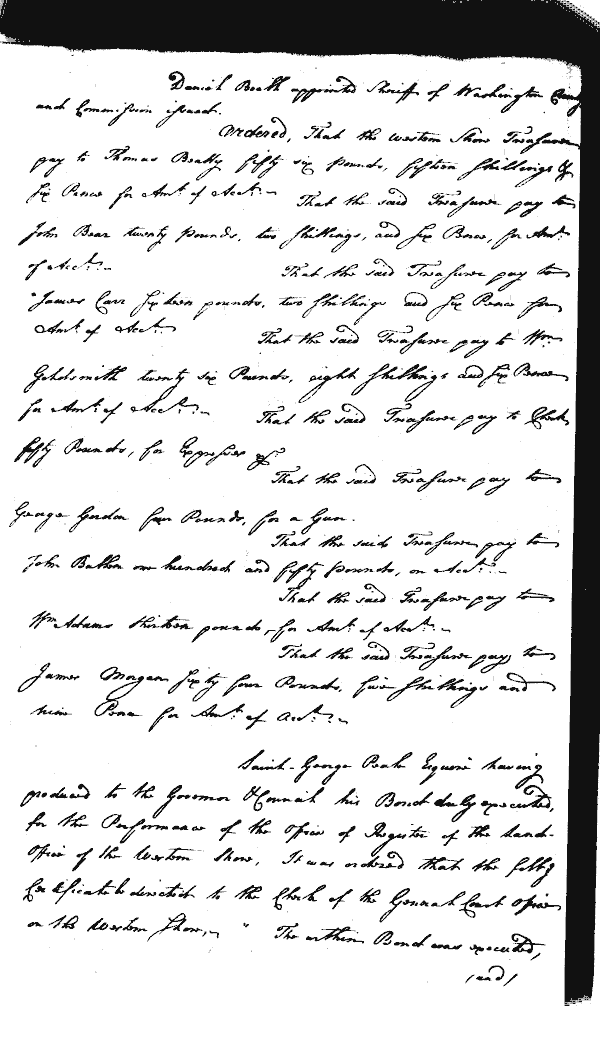 Daniel Beall appointed Sheriff of Washington County
and Commission issued.
Ordered, That the western Shore Treasurer
pay to Thomas Beatty fifty six pounds, fifteen shillings &
Six Pence for Amt. of Acct.
That the said Treasurer pay to
John Bear twenty pounds, two shillings, and six Pence, for Amt.
of Acct.
That the said Treasurer pay to
James Carr Sixteen pounds, two shillings and six Pence for
Amt. of Acct.
That the said Treasurer pay to Wm.
Goldsmith twenty six Pounds, eight shillings and six Pence
for Amt. of Acct.
That the said Treasurer pay to
fifty Pounds, for Expresses &c
That the said Treasurer pay to
George Gordon four Pounds, for a Gun.
That the said Treasurer pay to
John Bullen one hundred and fifty pounds, on Acct.
That the said Treasurer pay to
Wm. Adams thirteen pounds, for Amt. of Acct.
That the said Treasurer pay to
James Morgan Sixty four Pounds, five shillings and
nine Pence for Amt. of acct.
Saint George Peale Esquire having
produced to the Governor & Council his Bond duly executed,
for the Performance of the office of Register of the Land
Office of the Western Shore, It was ordered that the
Certificate be directed to the Clerk of the General Court Office
on the Western Shore, " The within Bond was executed,
(and)